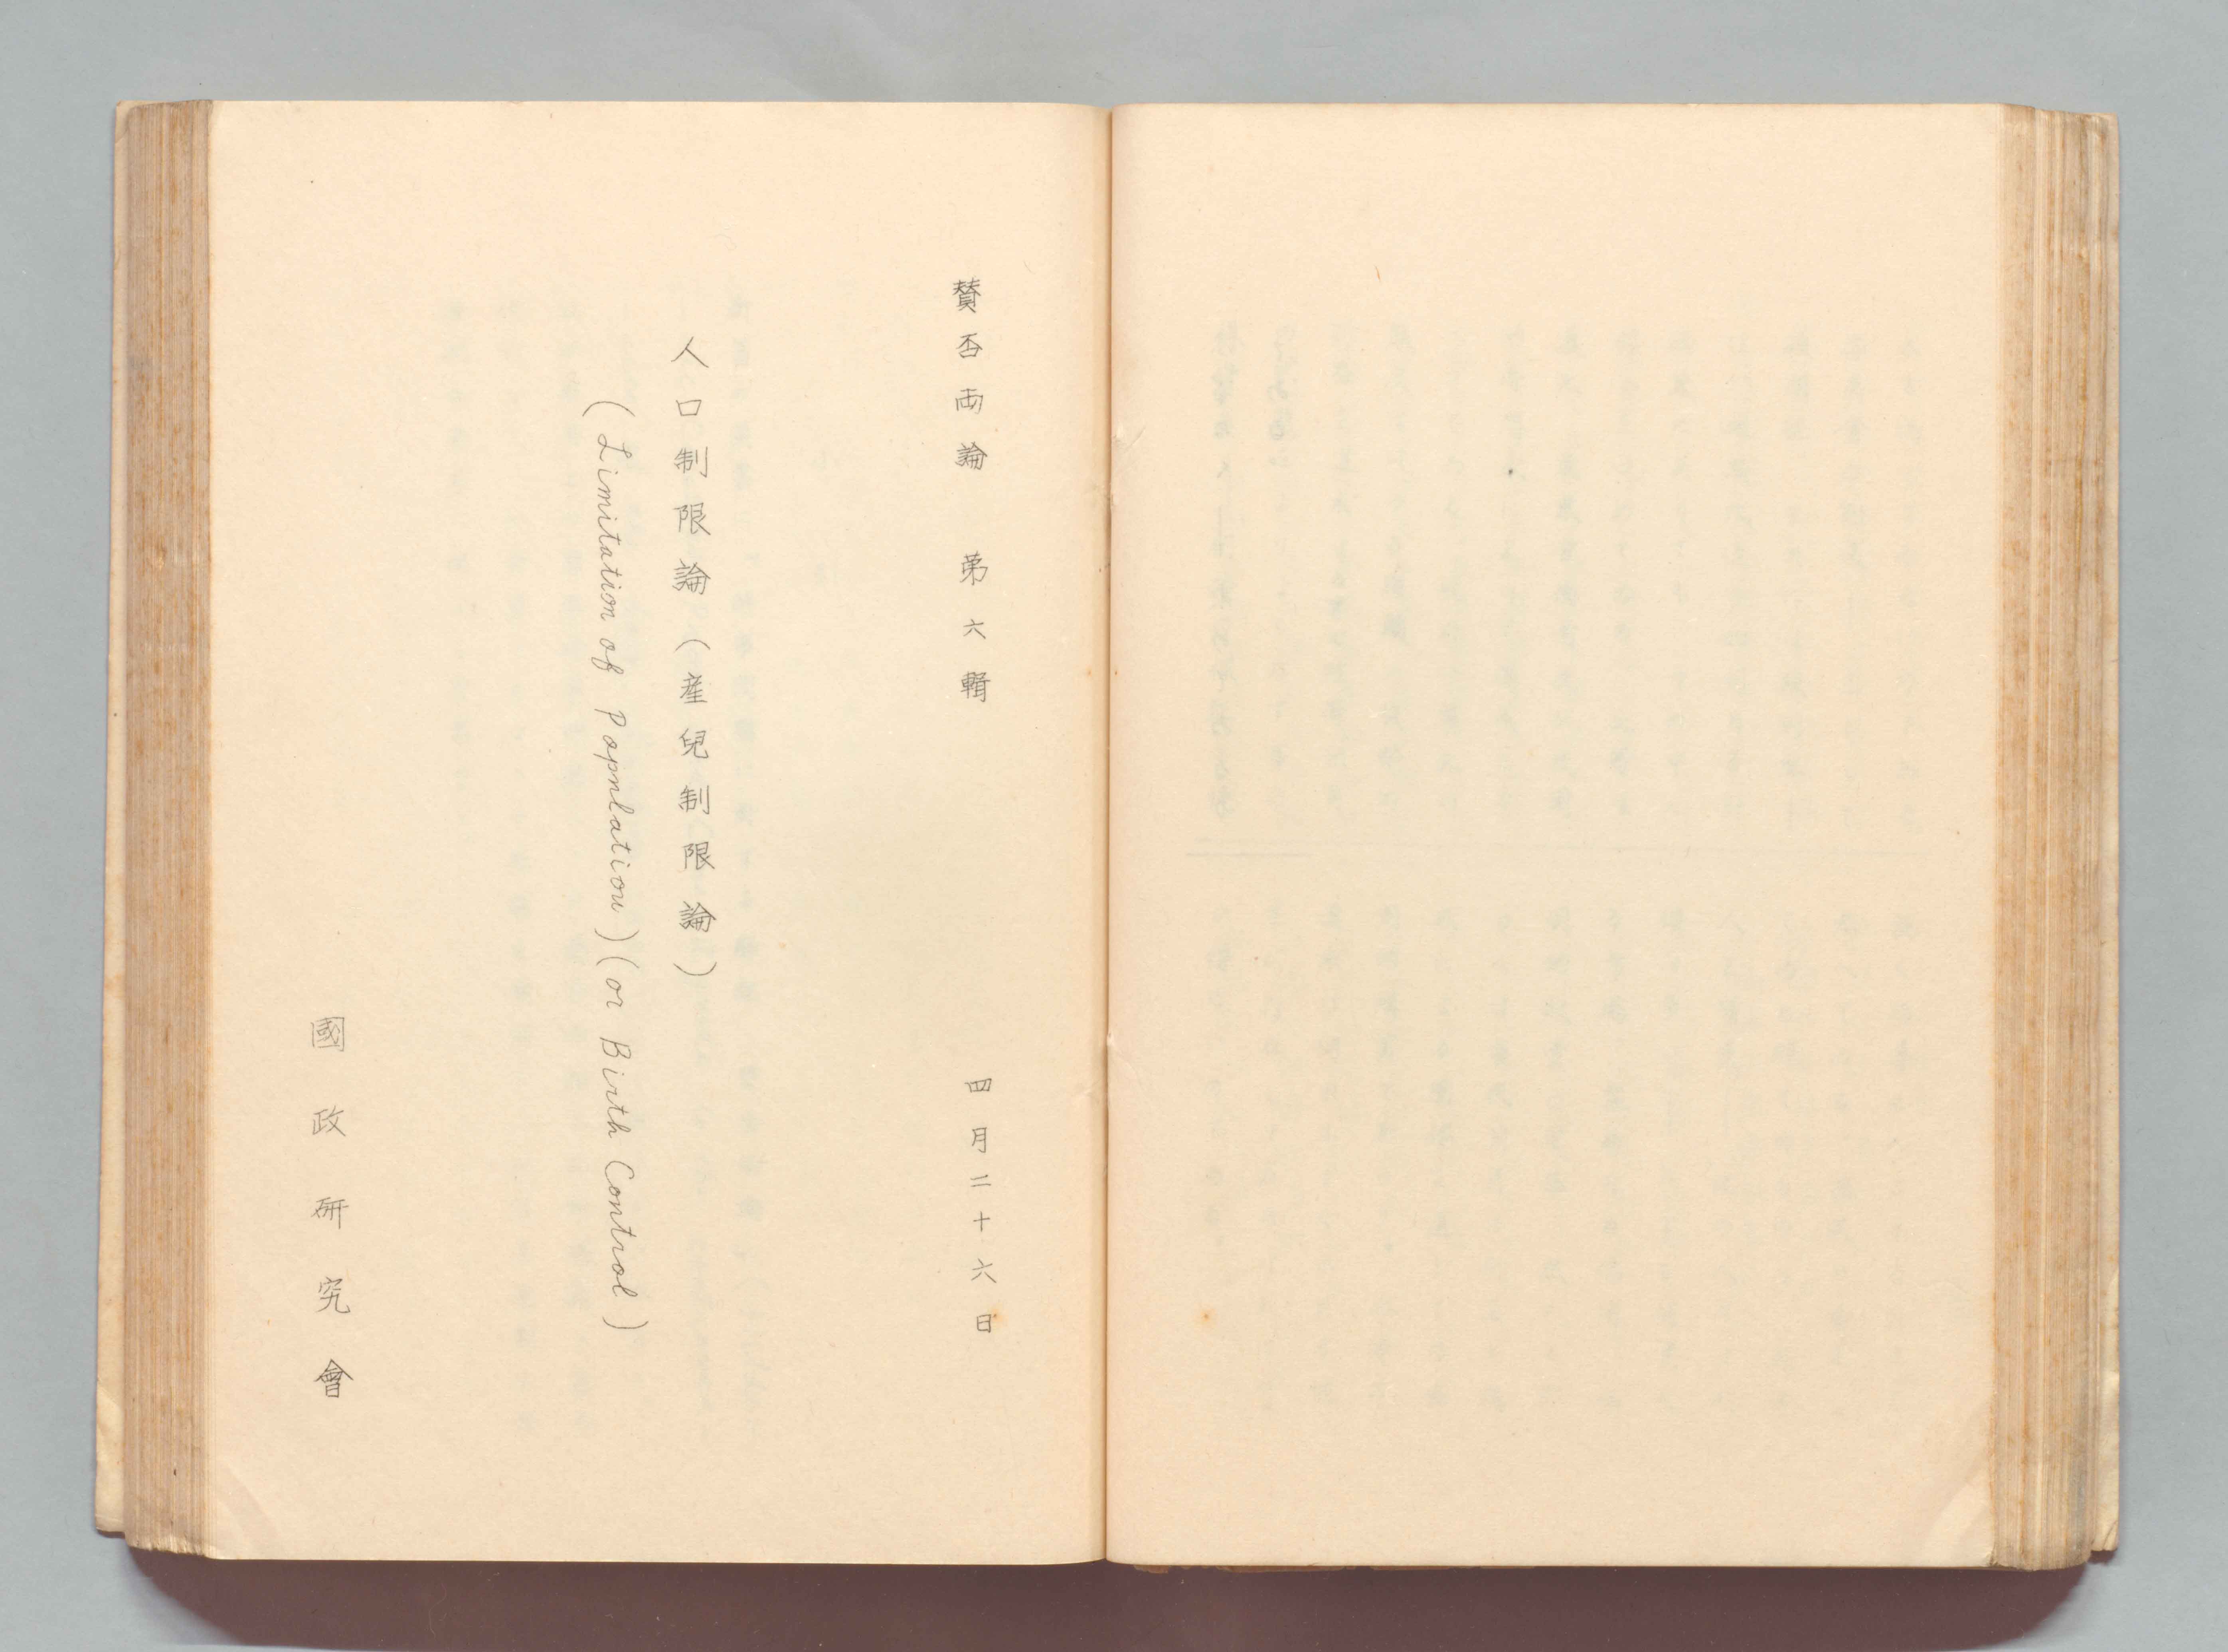 賛否両論　第六輯　四月二十六日
人口制限論（産兒制限論）
(Limitation of Popnlation)(or Birth Control)
國政研究會